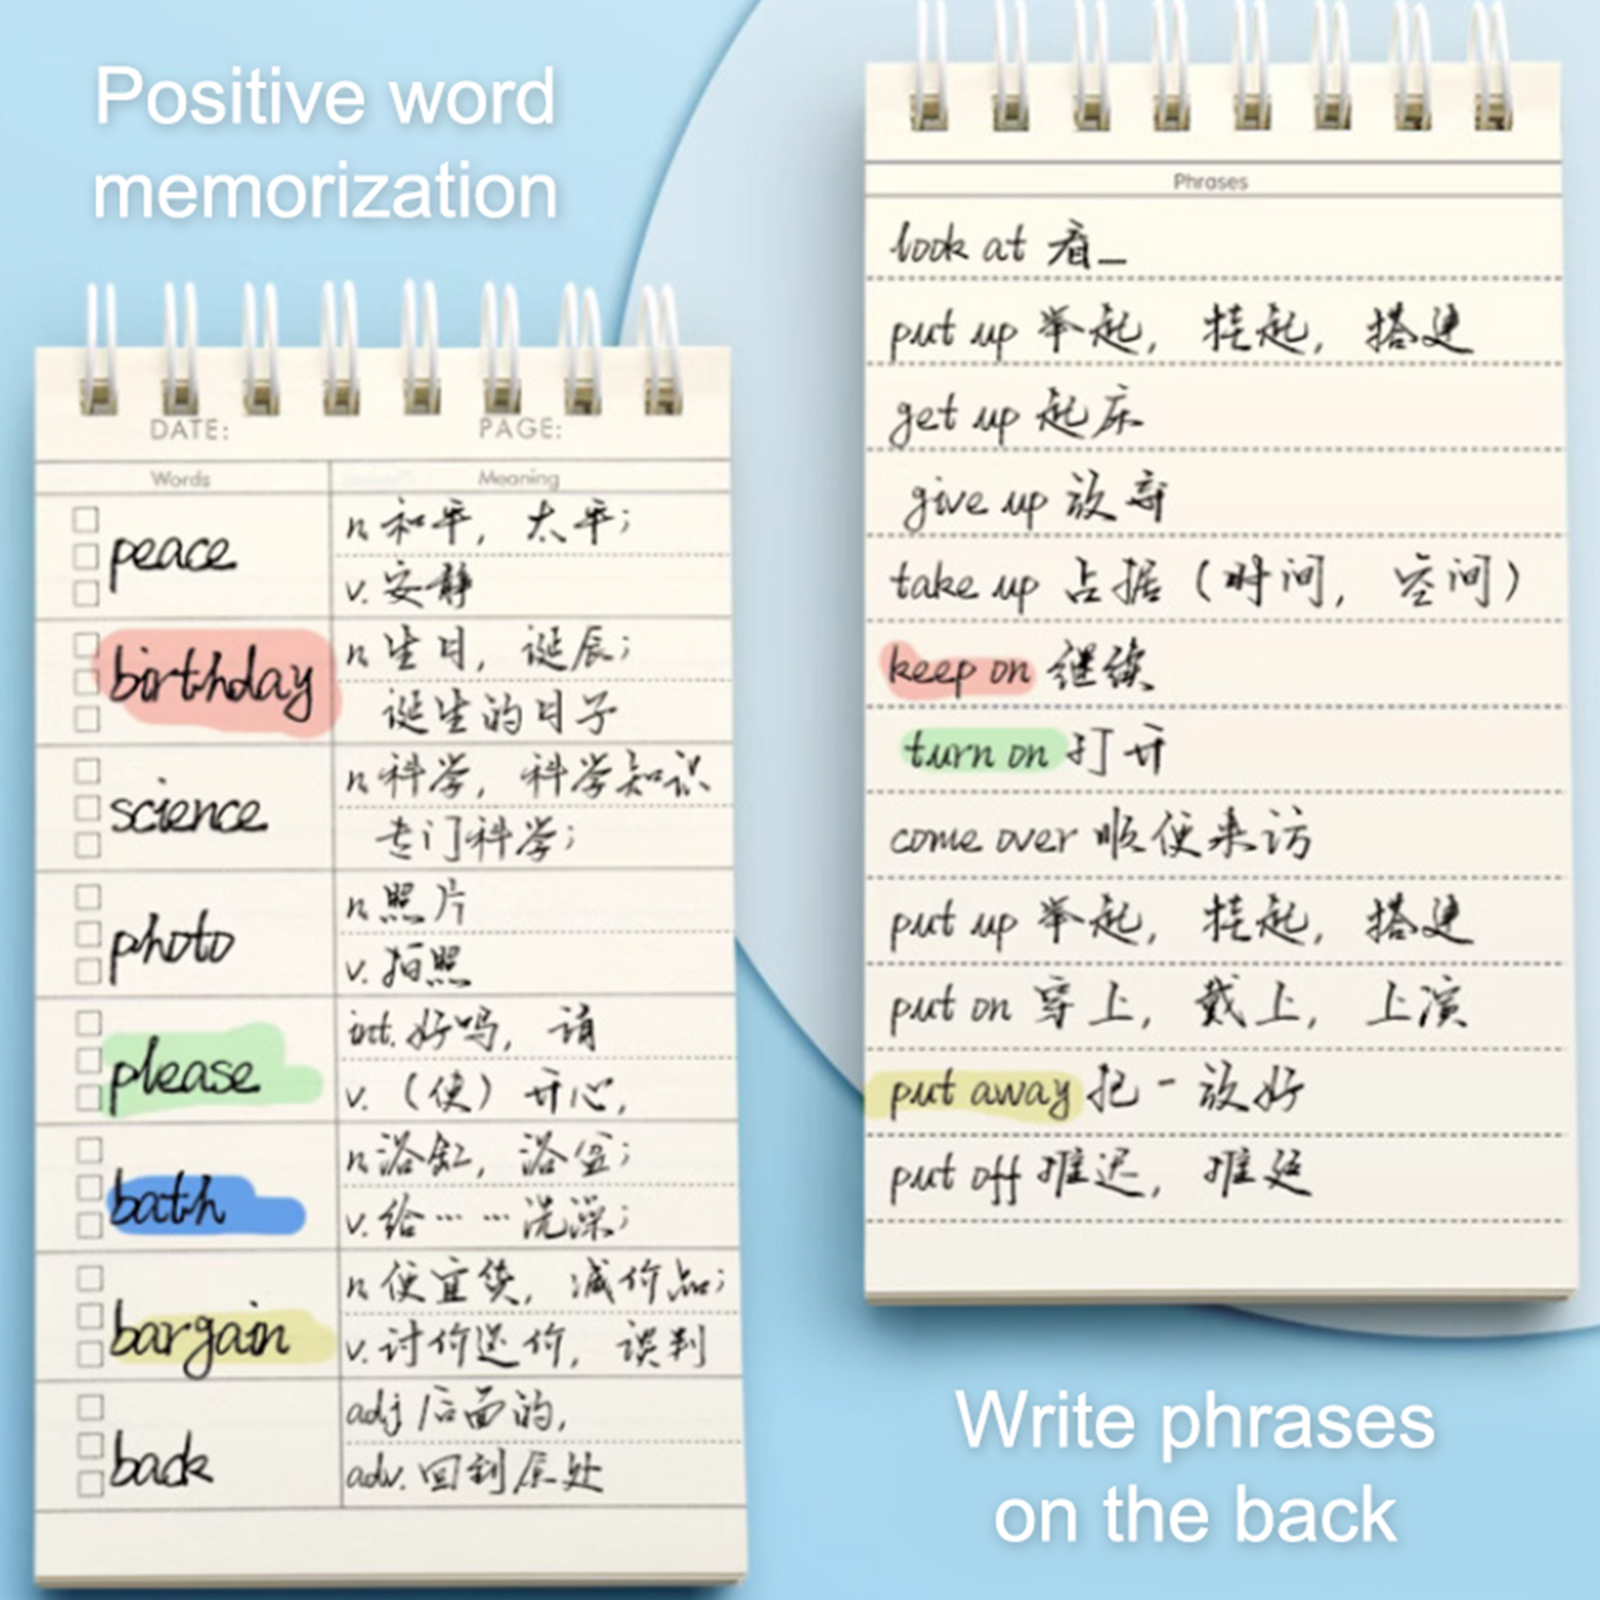 Positive word
memorization
DATE: PAGE:
Words Meaning
peace n. 和平，太平；
v. 安静
birthday n. 生日，诞辰；
诞生的日子
science n. 科学，科学知识
专门科学；
photo n. 照片
v. 拍照
please int. 好吗，请
v.（使）开心，
bath n. 浴缸，浴盆；
v. 给……洗澡；
bargain n. 便宜货，减价品；
v. 讨价还价，谈判
back adj 后面的，
adv. 回到原处
Phrases
look at 看_
put up 举起，挂起，搭建
get up 起床
give up 放弃
take up 占据（时间，空间）
keep on 继续
turn on 打开
come over 顺便来访
put up 举起，挂起，搭建
put on 穿上，戴上，上演
put away 把-放好
put off 推迟，推延
Write phrases
on the back